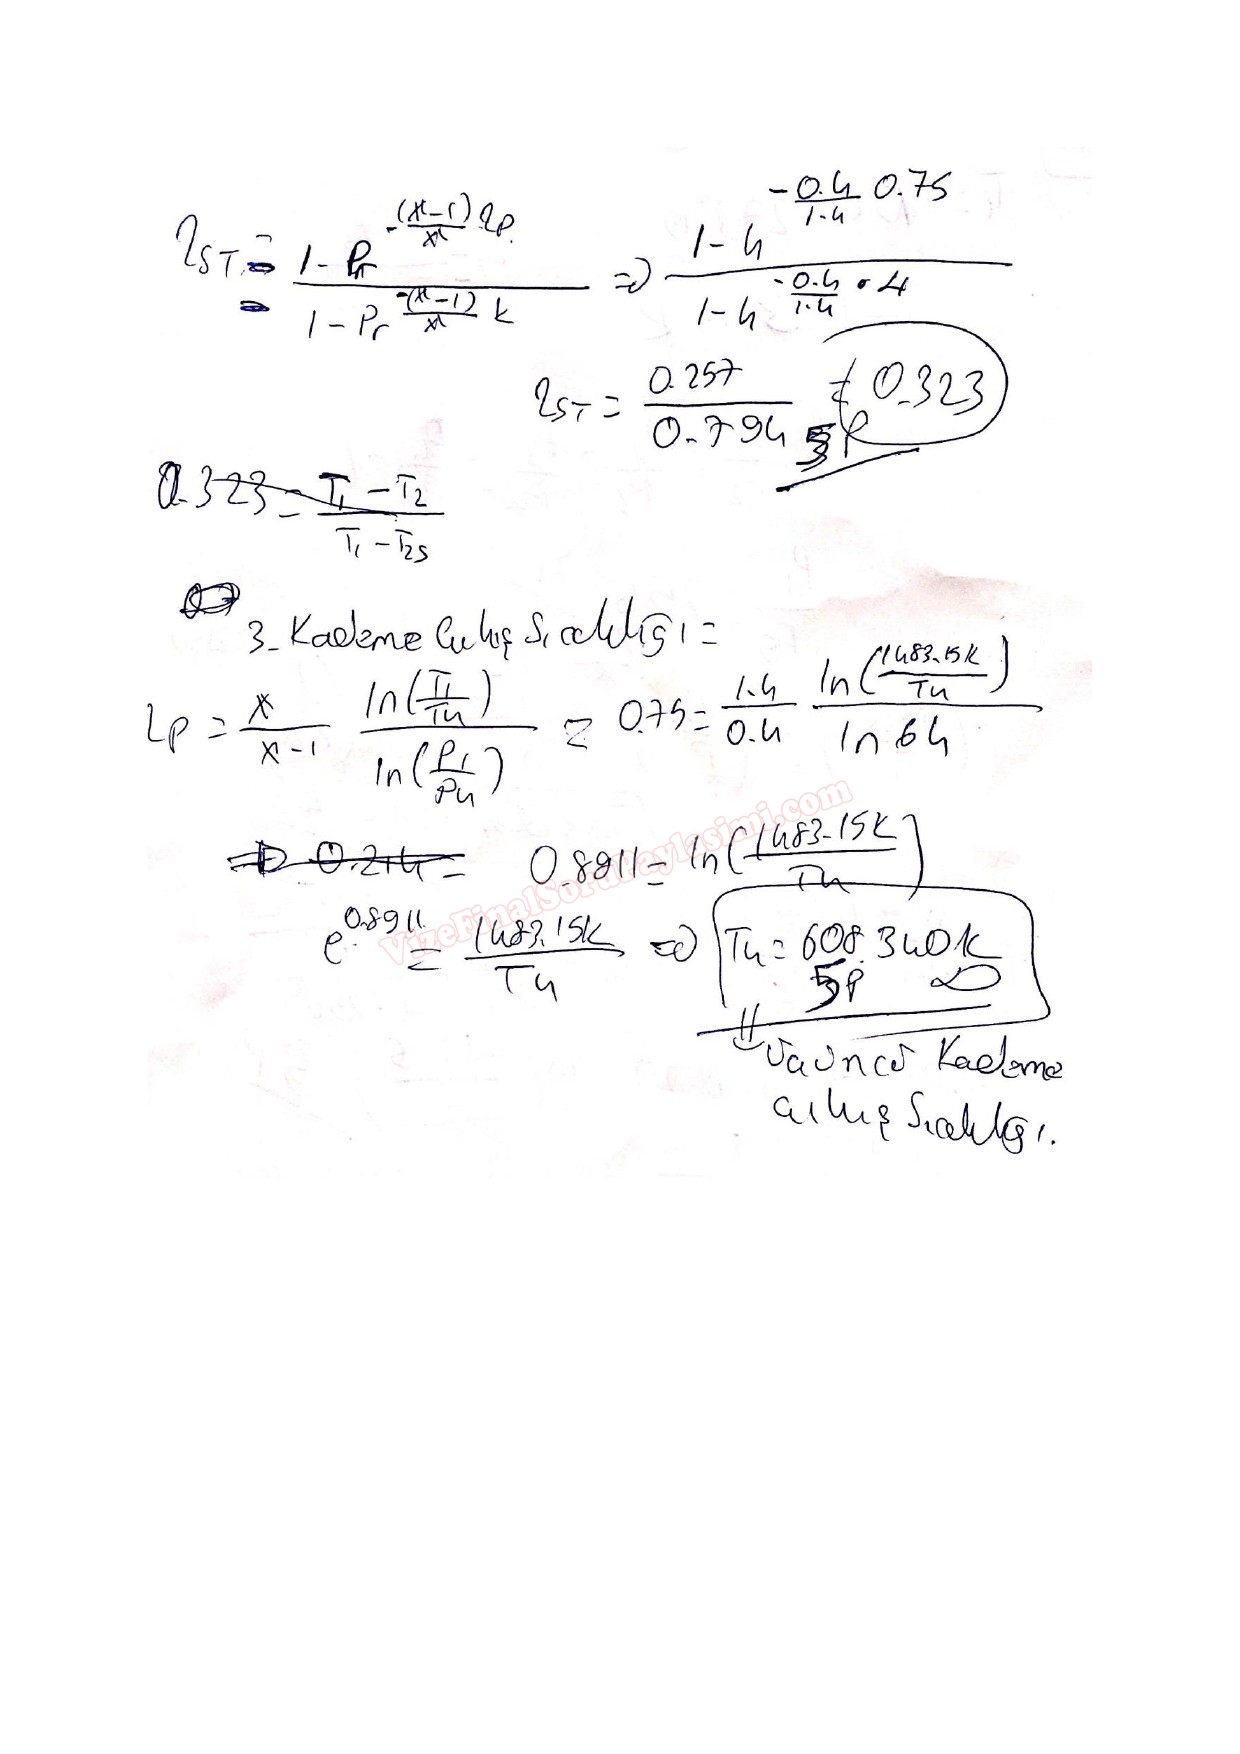 ηsT = (1 - Pr^(-(ϰ-1)/ϰ ηp)) / (1 - Pr^(-(ϰ-1)/ϰ k)) => (1-4^(-0.4/1.4 0.75)) / (1-4^(-0.4/1.4 • 4))
ηsT = 0.257 / 0.794 = 0.323
5P
0.323 = (T1 - T2) / (T1 - T2s)
3. Kademe Çıkış Sıcaklığı =
ηp = ϰ/(ϰ-1) ln(T1/T4) / ln(P1/P4) = 0.75 = 1.4/0.4 ln(1483.15K/T4) / ln 64
=> 0.214 = 0.8911 = ln(1483.15K/T4)
e^0.8911 = 1483.15K/T4 => T4 = 608.340K
5P
Üçüncü Kademe
Çıkış Sıcaklığı.
VizeFinalSoruPaylasimi.com